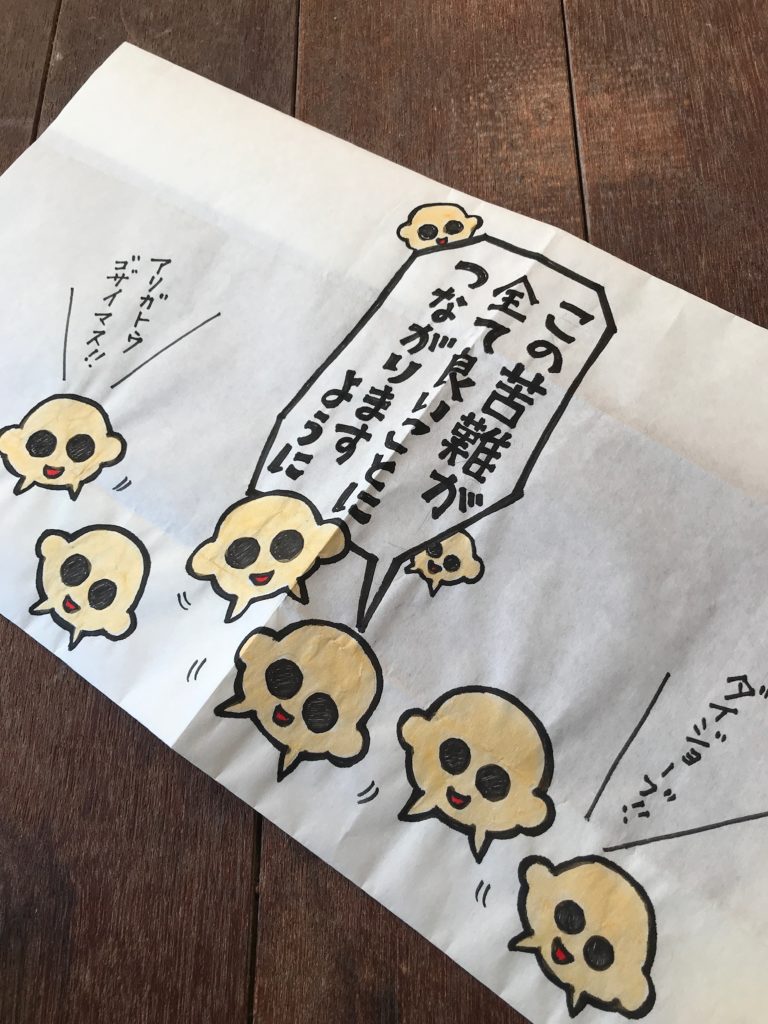 この苦難が
全て良いことに
つながります
ように
アリガトウ
ゴザイマス!!
ダイジョーブ!!